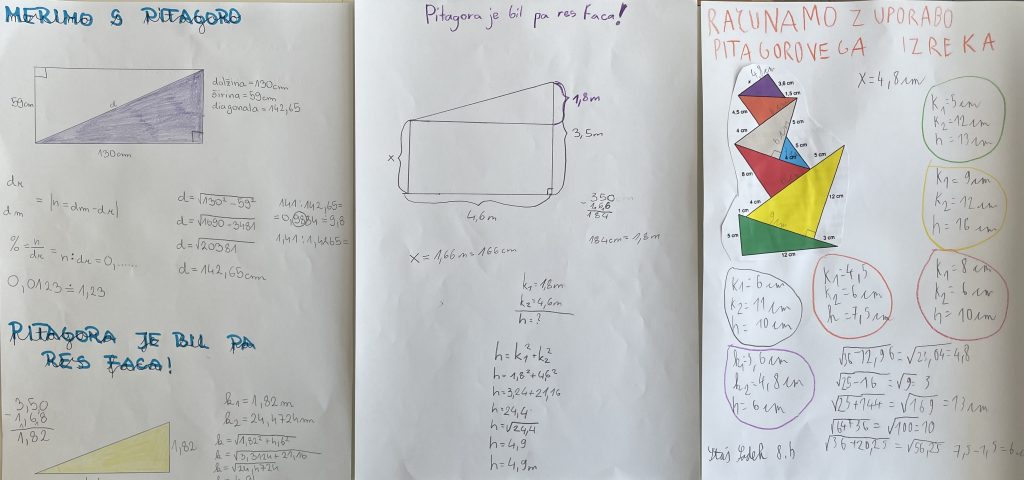 MERIMO S PITAGORO
59cm
d
130cm
dolžina = 130cm
širina = 59cm
diagonala = 142,65
dx
dm
= |n = dm - dx|
% = n/dx = n : dx = 0,......
0,0123 ≐ 1,23
d = √130² - 59²
d = √1690 - 3481
d = √20381
d = 142,65cm
141 : 142,65 =
= 0,9884 = 9,8
1,41 : 1,4265 =
PITAGORA JE BIL PA
RES FACA!
3,50
- 1,68
1,82
1,82
k₁ = 1,82m
k₂ = 24,4724m
k = √1,82² + 4,6²
k = √3,3124 + 21,16
k = √24,4724
Pitagora je bil pa res faca!
1,8m
3,5m
x
4,6m
350
- 166
184
184cm = 1,8m
x = 1,66m = 166cm
k₁ = 1,8m
k₂ = 4,6m
h = ?
h = k₁² + k₂²
h = 1,8² + 4,6²
h = 3,24 + 21,16
h = 24,4
h = √24,4
h = 4,9
h = 4,9m
RAČUNAMO Z UPORABO
PITAGOROVEGA IZREKA
x = 4,8cm
4,8cm
x
3,6 cm
1,5 cm
4,5 cm
5 cm
4 cm
5 cm
4 cm
3 cm
8 cm
12 cm
4 cm
1 cm
9cm
5 cm
3 cm
12 cm
k₁ = 5cm
k₂ = 12cm
h = 13cm
k₁ = 9cm
k₂ = 12cm
h = 16cm
k₁ = 6cm
k₂ = 11cm
h = 10cm
k₁ = 4,5
k₂ = 6cm
h = 7,5cm
k₁ = 8cm
k₂ = 6cm
h = 10cm
k₁ = 3,6cm
k₂ = 4,8cm
h = 6cm
√36 - 12,96 = √23,04 = 4,8
√25 - 16 = √9 = 3
√25 + 144 = √169 = 13cm
√64 + 36 = √100 = 10
√36 + 20,25 = √56,25
7,5 - 1,5 = 6c
8.b